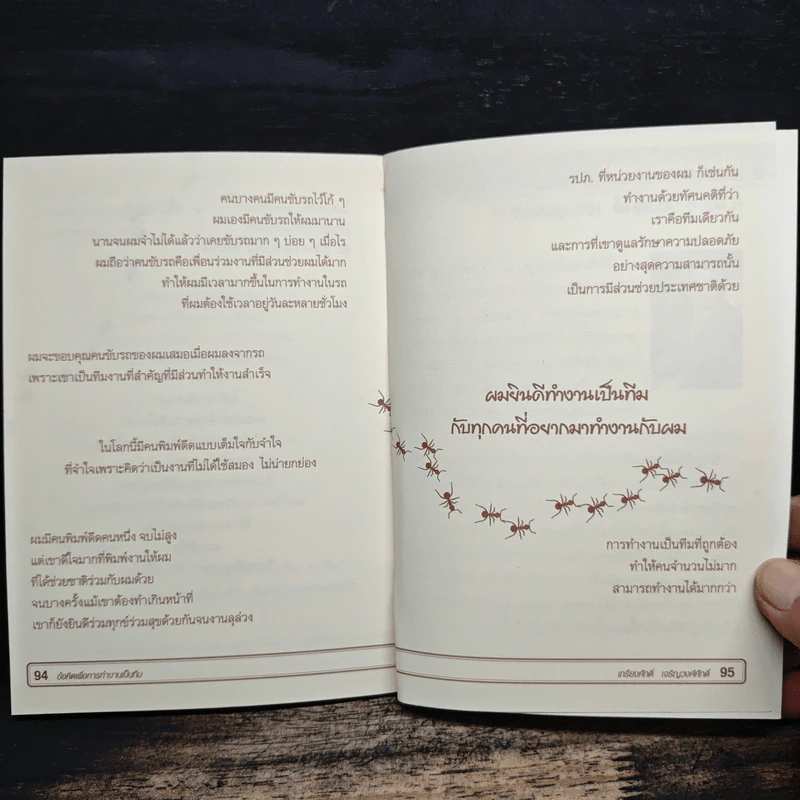 คนบางคนมีคนขับรถไว้โก้ ๆ
ผมเองมีคนขับรถให้ผมมานาน
นานจนผมจำไม่ได้แล้วว่าเคยขับรถมาก ๆ บ่อย ๆ เมื่อไร
ผมถือว่าคนขับรถคือเพื่อนร่วมงานที่มีส่วนช่วยผมได้มาก
ทำให้ผมมีเวลามากขึ้นในการทำงานในรถ
ที่ผมต้องใช้เวลาอยู่วันละหลายชั่วโมง
ผมจะขอบคุณคนขับรถของผมเสมอเมื่อผมลงจากรถ
เพราะเขาเป็นทีมงานที่สำคัญที่มีส่วนทำให้งานสำเร็จ
ในโลกนี้มีคนพิมพ์ดีดแบบเต็มใจกับจำใจ
ที่จำใจเพราะคิดว่าเป็นงานที่ไม่ได้ใช้สมอง ไม่น่ายกย่อง
ผมมีคนพิมพ์ดีดคนหนึ่ง จบไม่สูง
แต่เขาดีใจมากที่พิมพ์งานให้ผม
ที่ได้ช่วยชาติร่วมกับผมด้วย
จนบางครั้งแม้เขาต้องทำเกินหน้าที่
เขาก็ยังยินดีร่วมทุกข์ร่วมสุขด้วยกันจนงานลุล่วง
94 ข้อคิดเพื่อการทำงานเป็นทีม
รปภ. ที่หน่วยงานของผม ก็เช่นกัน
ทำงานด้วยทัศนคติที่ว่า
เราคือทีมเดียวกัน
และการที่เขาดูแลรักษาความปลอดภัย
อย่างสุดความสามารถนั้น
เป็นการมีส่วนช่วยประเทศชาติด้วย
ผมยินดีทำงานเป็นทีม
กับทุกคนที่อยากมาทำงานกับผม
การทำงานเป็นทีมที่ถูกต้อง
ทำให้คนจำนวนไม่มาก
สามารถทำงานได้มากกว่า
เกรียงศักดิ์ เจริญวงศ์ศักดิ์ 95